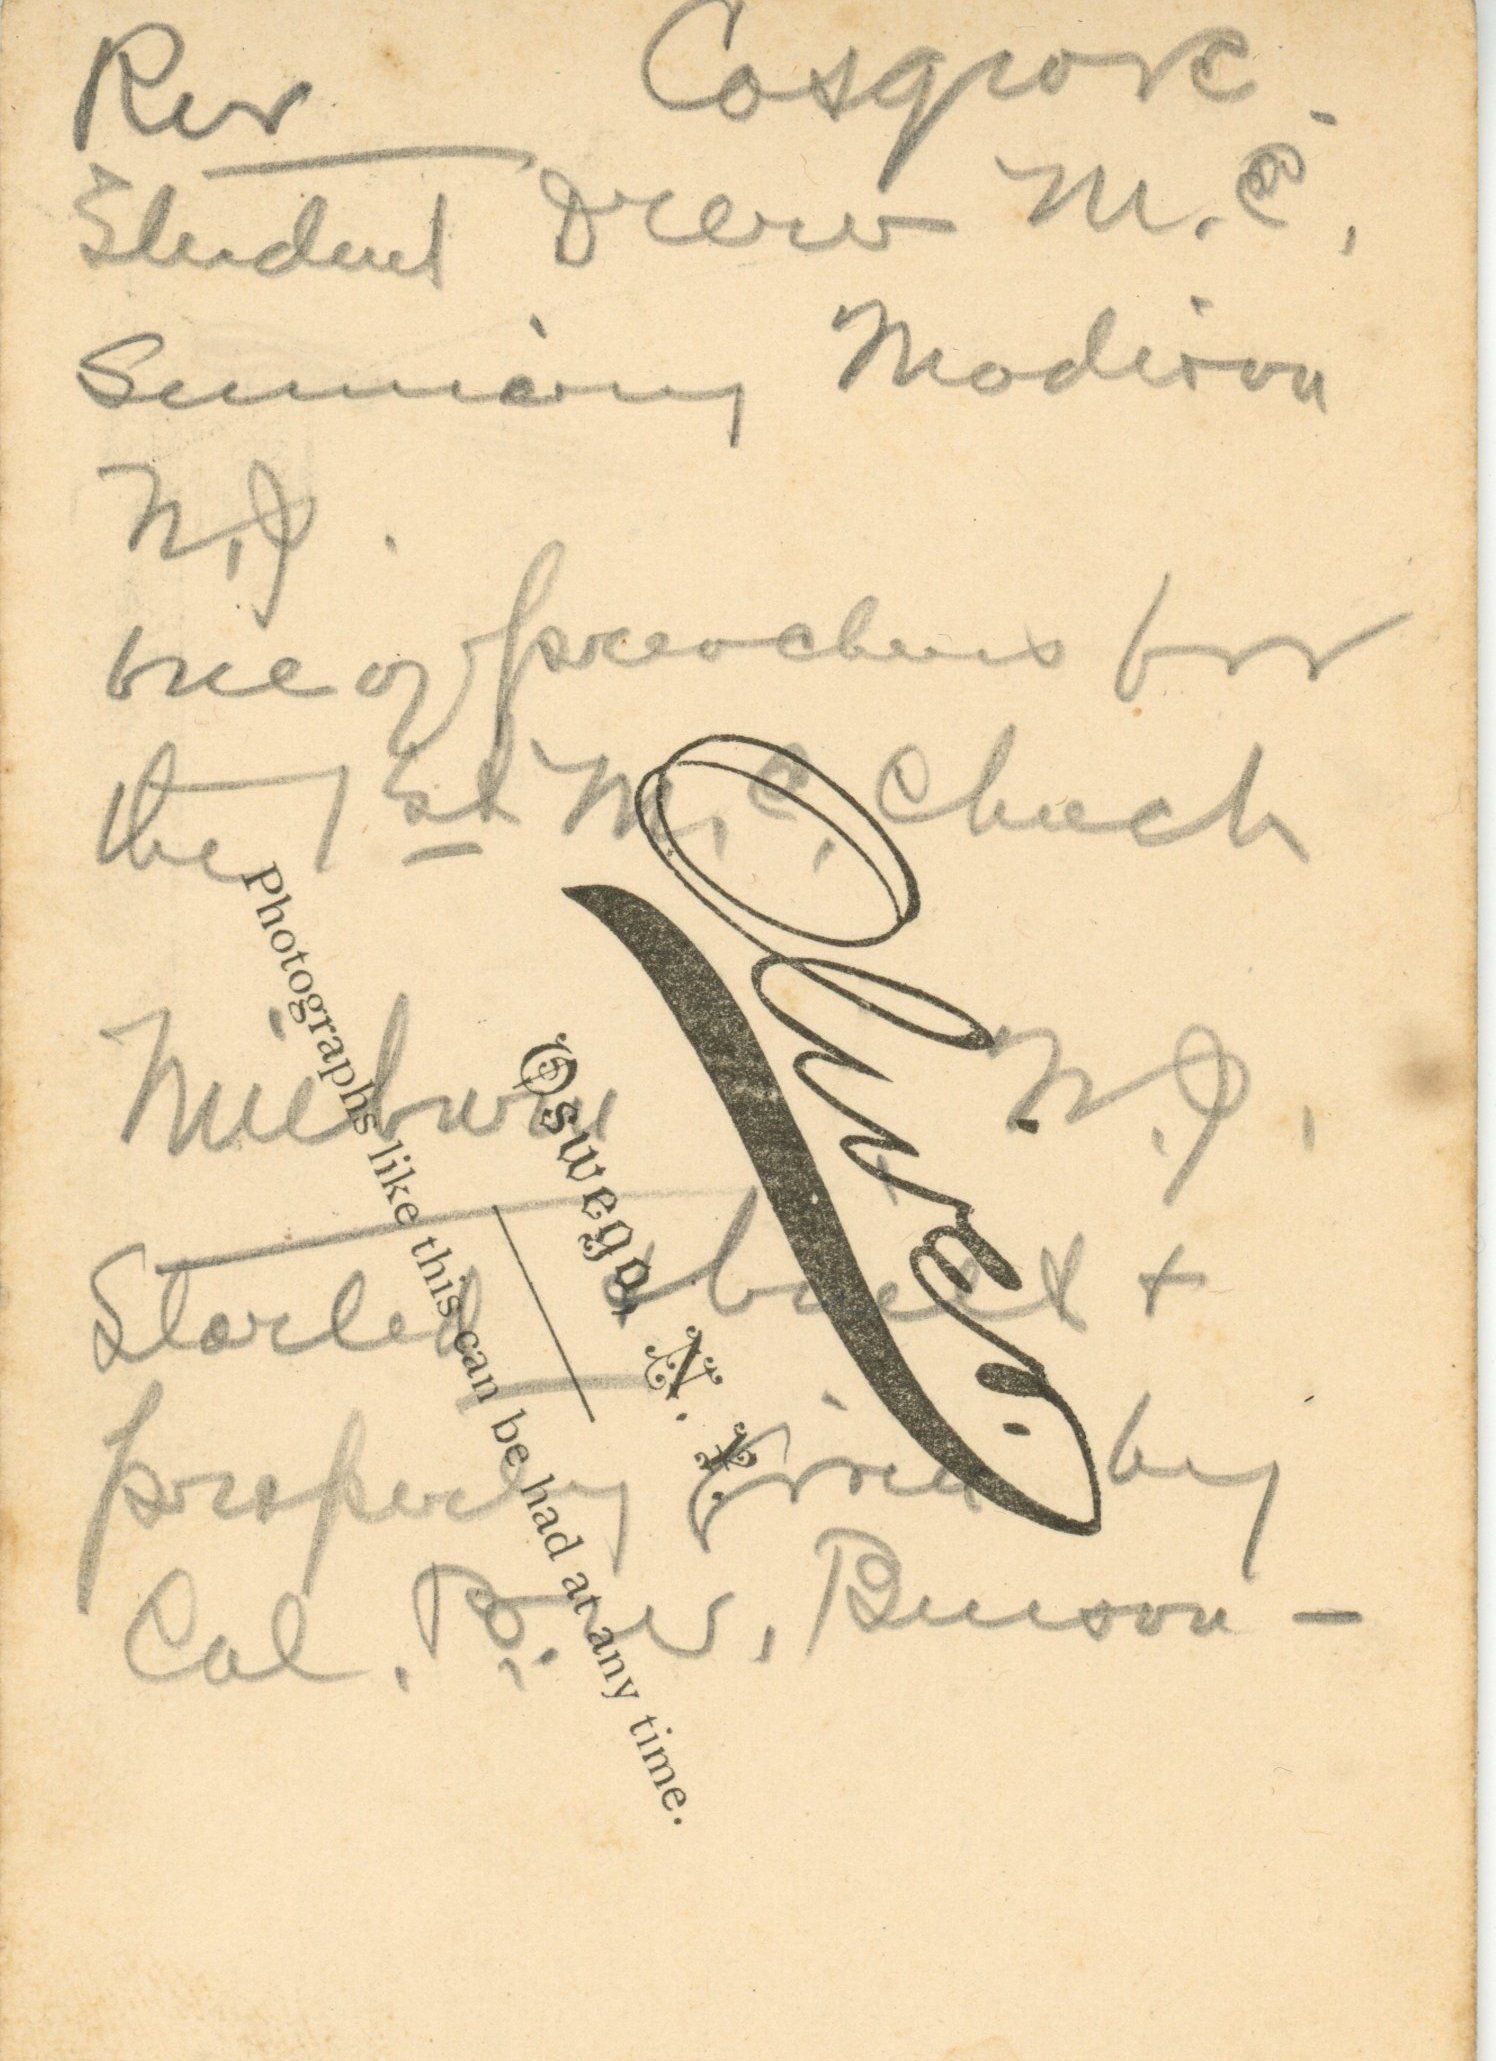 Rev ____ Cosgrove.
Student Drew M.E.
Seminary Madison
N.J.
one of preachers for
the 1st M.E. Church
Milburn N.J.
Started built +
property given by
Col. R. W.
Oswego, N. Y.
Photographs like this can be had at any time.